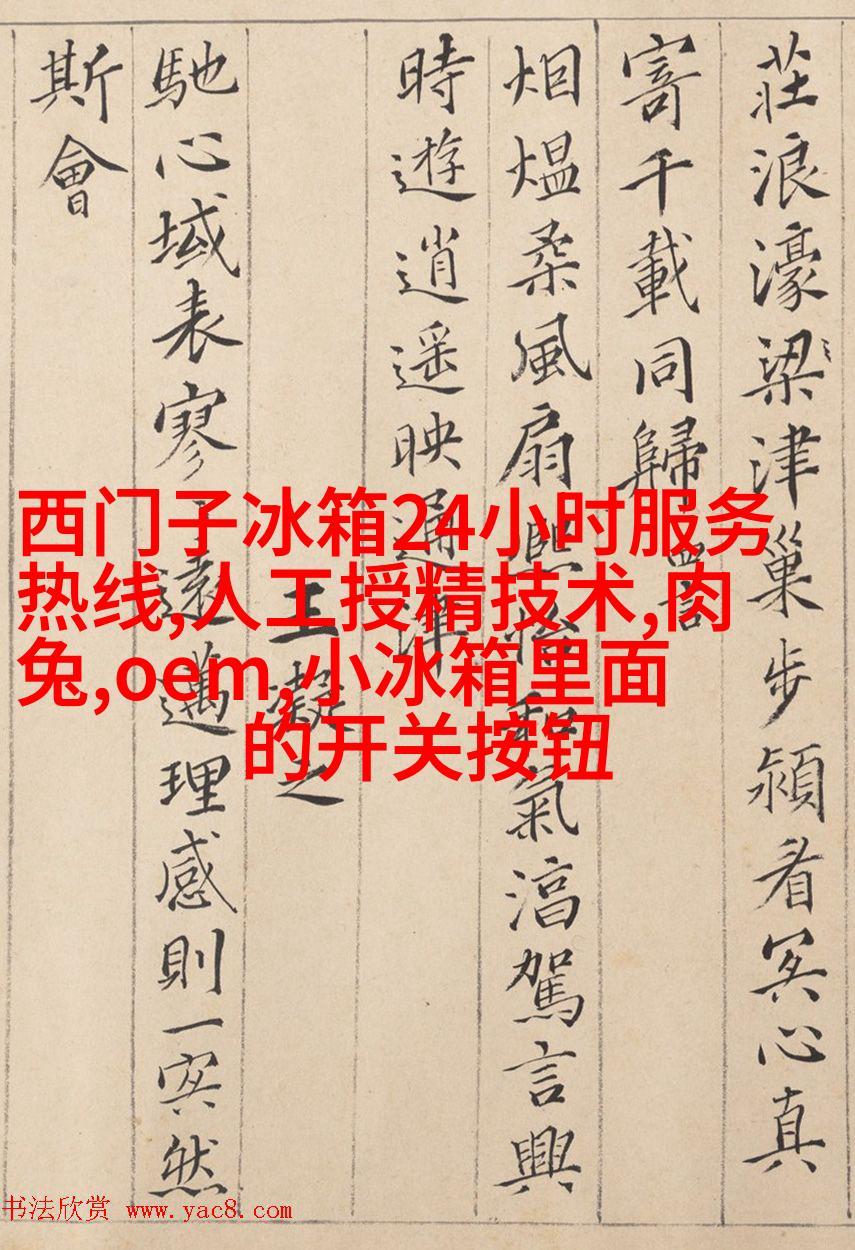 莊浪濠梁津巢步潁看冥心真
寄千載同歸四言
烟熅柔風扇熙怡和氣淳駕言興
時遊逍遥映通津
王凝之
馳心域表寥〻遠邁理感則一冥然
斯會
西门子冰箱24小时服务
热线,人工授精技术,肉
兔,oem,小冰箱里面
的开关按钮
书法欣赏 www.yac8.com